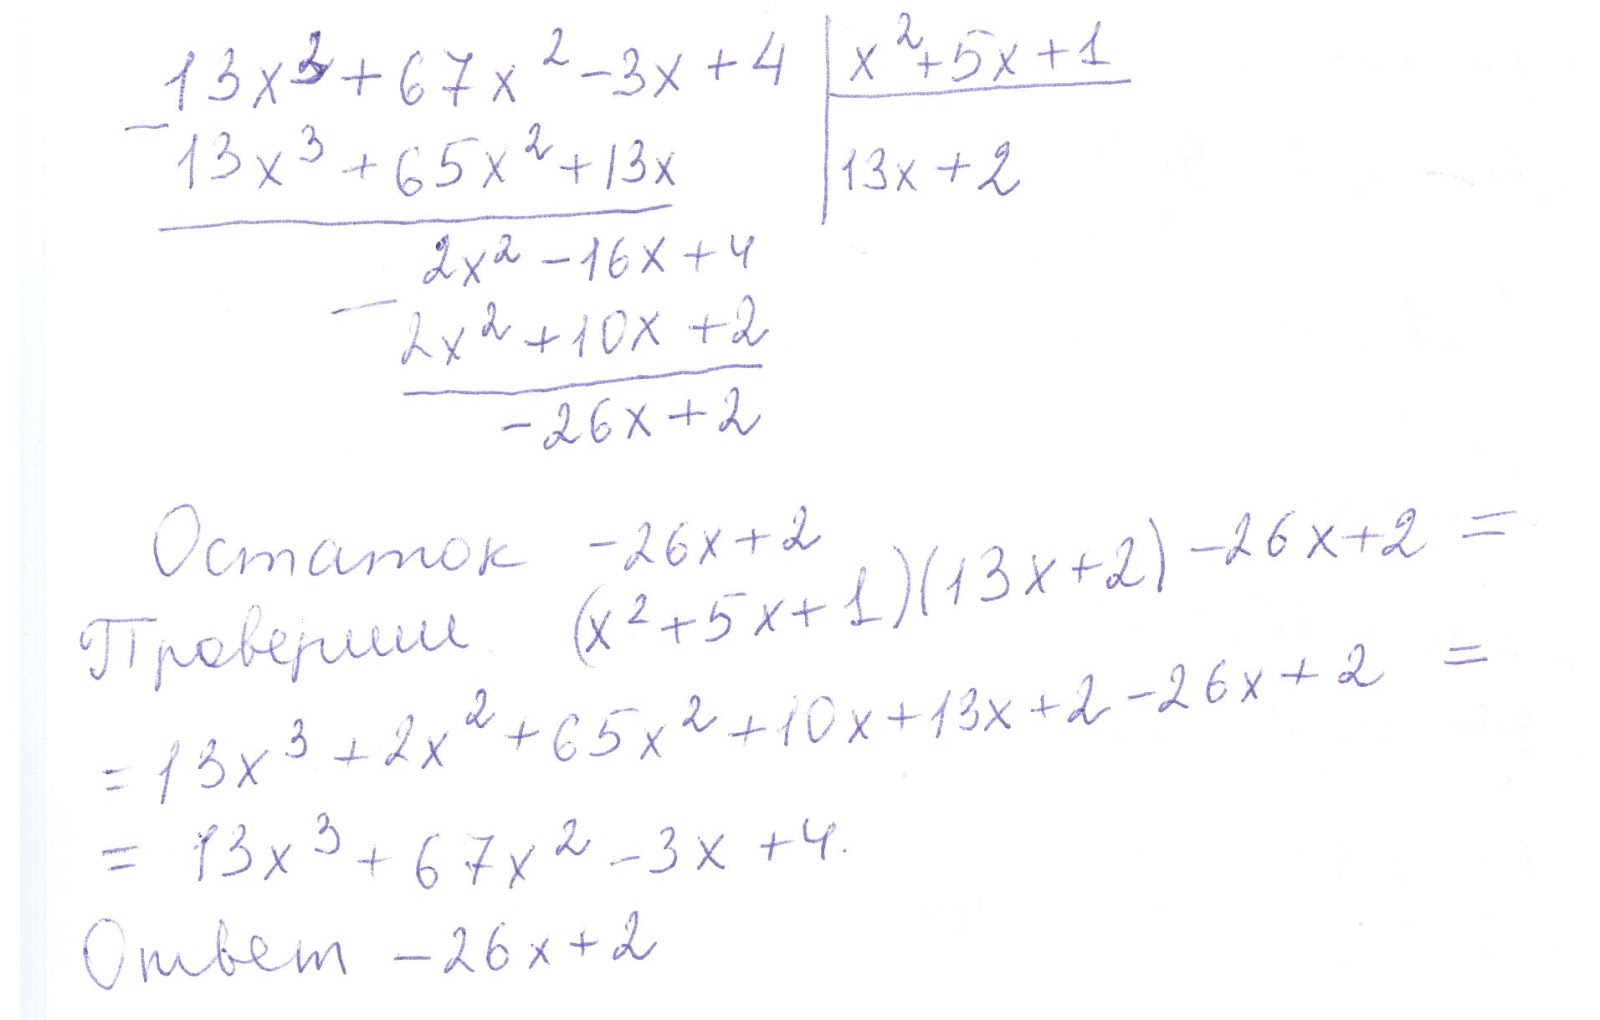 13x³ + 67x² - 3x + 4 | x² + 5x + 1
- 13x³ + 65x² + 13x | 13x + 2
2x² - 16x + 4
- 2x² + 10x + 2
- 26x + 2
Остаток - 26x + 2
Проверим (x² + 5x + 1)(13x + 2) - 26x + 2 =
= 13x³ + 2x² + 65x² + 10x + 13x + 2 - 26x + 2 =
= 13x³ + 67x² - 3x + 4.
Ответ - 26x + 2